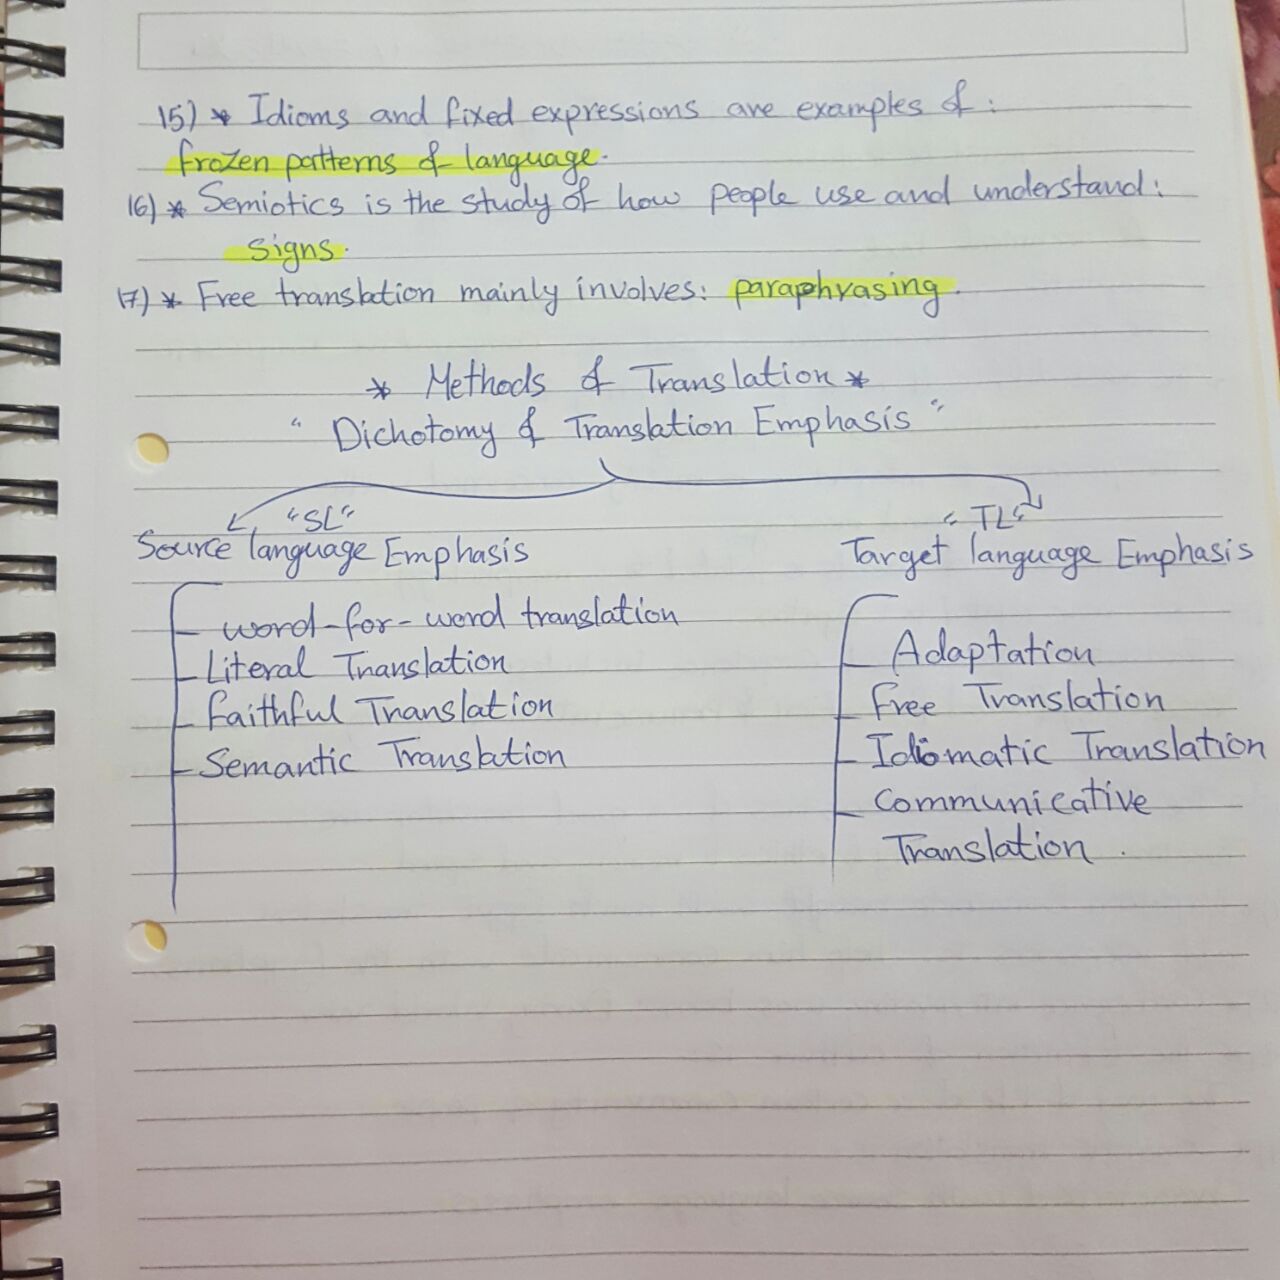 15) * Idioms and fixed expressions are examples of :
frozen patterns of language.
16) * Semiotics is the study of how people use and understand :
signs.
17) * Free translation mainly involves : paraphrasing.
* Methods of Translation *
" Dichotomy of Translation Emphasis "
"SL"
Source language Emphasis
word-for-word translation
Literal Translation
Faithful Translation
Semantic Translation
"TL"
Target language Emphasis
Adaptation
Free Translation
Idiomatic Translation
Communicative
Translation.